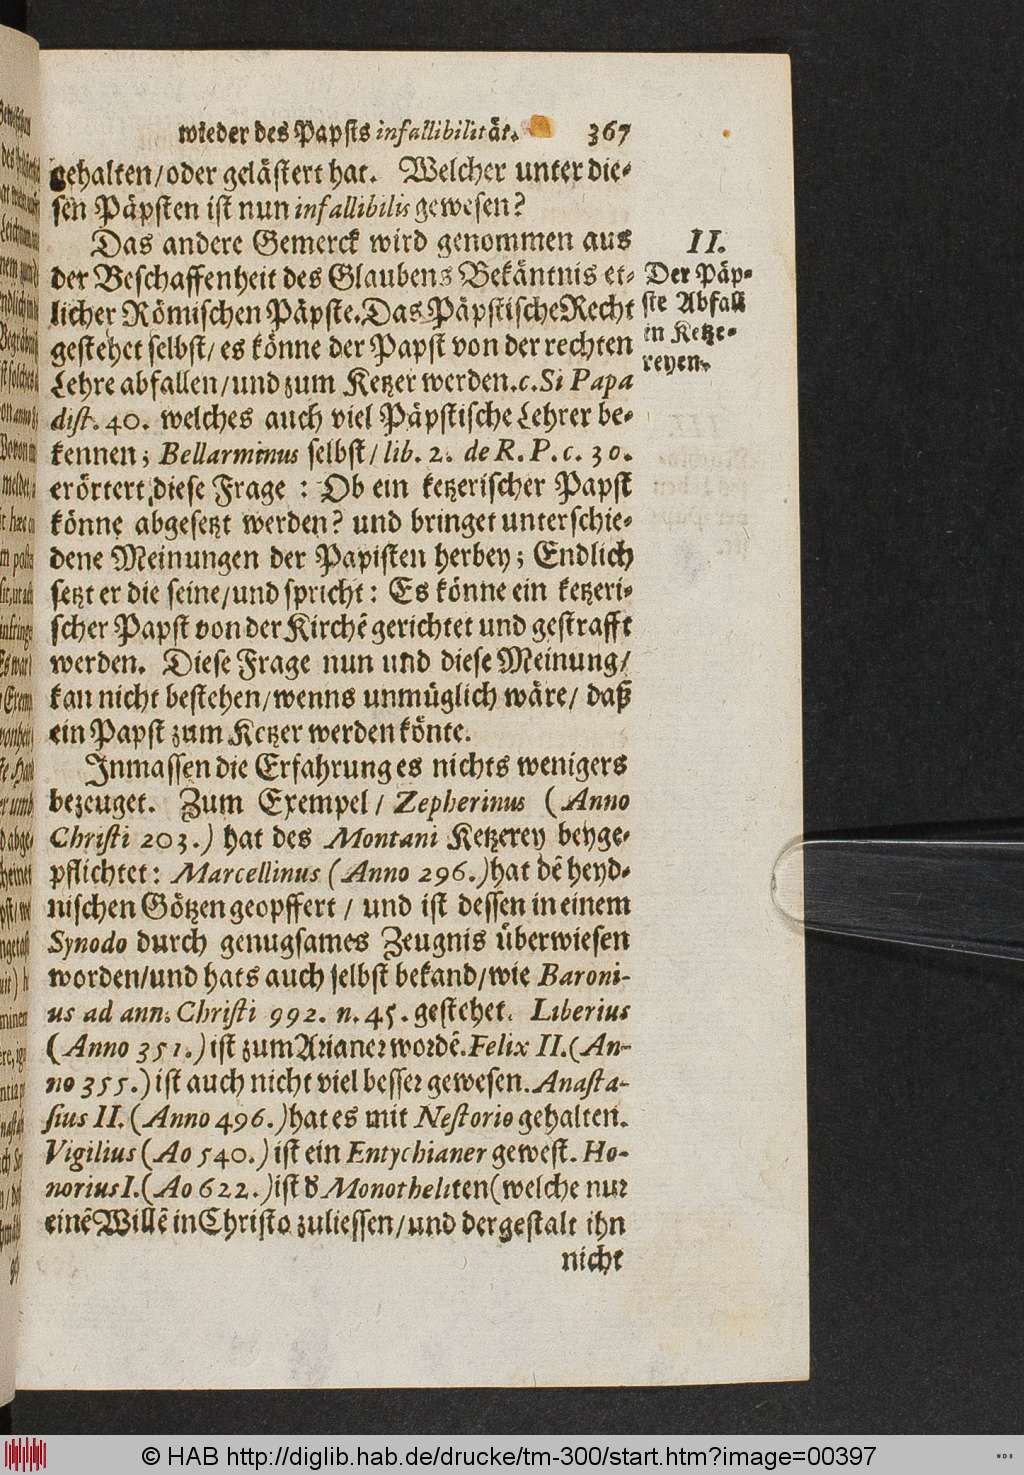 wieder des Papsts infallibilität. 367
gehalten/oder gelästert hat. Welcher unter die-
sen Päpsten ist nun infallibilis gewesen?
Das andere Gemerck wird genommen aus
der Beschaffenheit des Glaubens Bekäntnis et-
licher Römischen Päpste. Das Päpstische Recht
gestehet selbst/ es könne der Papst von der rechten
Lehre abfallen/und zum Ketzer werden. c. Si Papa
dist. 40. welches auch viel Päpstische Lehrer be-
kennen; Bellarminus selbst/ lib. 2. de R. P. c. 30.
erörtert diese Frage : Ob ein ketzerischer Papst
könne abgesetzt werden? und bringet unterschie-
dene Meinungen der Papisten herbey; Endlich
setzt er die seine/und spricht: Es könne ein ketzeri-
scher Papst von der Kirchē gerichtet und gestrafft
werden. Diese Frage nun und diese Meinung/
kan nicht bestehen/wenns unmüglich wäre/ daß
ein Papst zum Ketzer werden könte.
Inmassen die Erfahrung es nichts wenigers
bezeuget. Zum Exempel / Zepherinus ( Anno
Christi 203.) hat des Montani Ketzerey beyge-
pflichtet: Marcellinus (Anno 296.) hat dē heyd-
nischen Götzen geopffert / und ist dessen in einem
Synodo durch genugsames Zeugnis überwiesen
worden/und hats auch selbst bekand/wie Baroni-
us ad ann. Christi 992. n. 45. gestehet. Liberius
(Anno 351.) ist zum Arianer wordē. Felix II. (An-
no 355.) ist auch nicht viel besser gewesen. Anasta-
sius II. (Anno 496.) hat es mit Nestorio gehalten.
Vigilius (Ao 540.) ist ein Entychianer gewest. Ho-
norius I. (Ao 622.) ist d' Monotheliten (welche nur
einē Willē in Christo zuliessen/und dergestalt ihn
nicht
II.
Der Päp-
ste Abfall
in Ketze-
reyen.
© HAB http://diglib.hab.de/drucke/tm-300/start.htm?image=00397